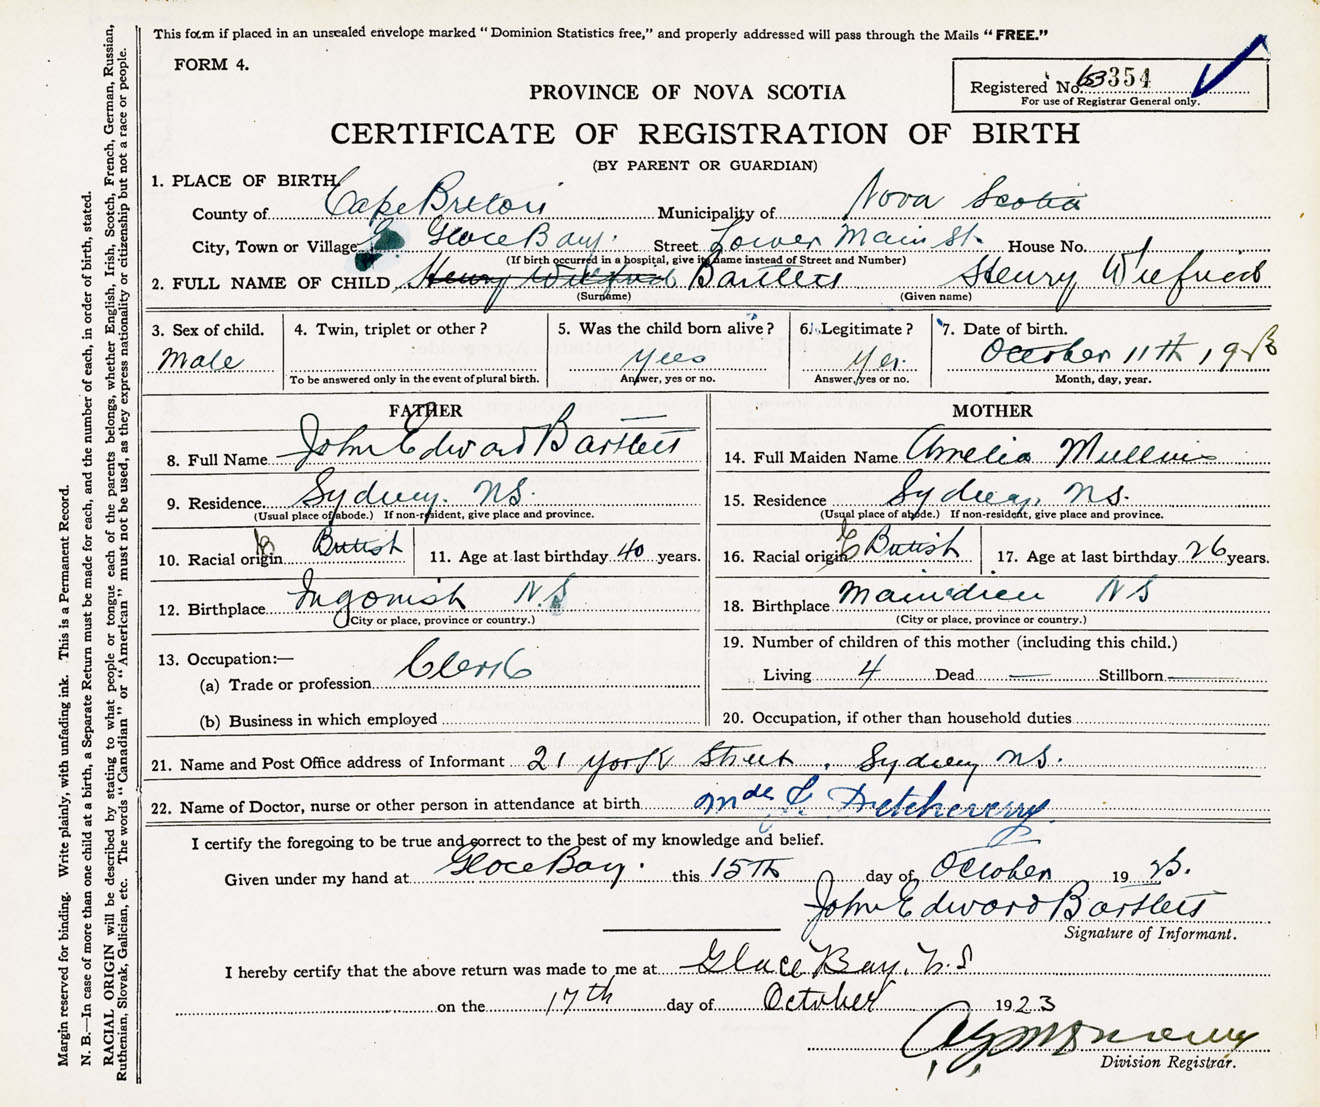 This form if placed in an unsealed envelope marked "Dominion Statistics free," and properly addressed will pass through the Mails "FREE."
FORM 4.
Registered No. 354
For use of Registrar General only.
PROVINCE OF NOVA SCOTIA
CERTIFICATE OF REGISTRATION OF BIRTH
(BY PARENT OR GUARDIAN)
1. PLACE OF BIRTH
County of Cape Breton Municipality of Nova Scotia
City, Town or Village Glace Bay. Street Lower Main St. House No. 1
(If birth occurred in a hospital, give its name instead of Street and Number)
2. FULL NAME OF CHILD Henry Wilfred Bartlett Henry Wilfried
(Surname) (Given name)
3. Sex of child. 4. Twin, triplet or other? 5. Was the child born alive? 6. Legitimate? 7. Date of birth.
Male Yees Yes. October 11th 1923
To be answered only in the event of plural birth. Answer, yes or no. Answer, yes or no. Month, day, year.
FATHER MOTHER
8. Full Name John Edward Bartlett 14. Full Maiden Name Amelia Mullins
9. Residence Sydney. NS. 15. Residence Sydney, NS.
(Usual place of abode.) If non-resident, give place and province. (Usual place of abode.) If non-resident, give place and province.
10. Racial origin British 11. Age at last birthday 40 years. 16. Racial origin British 17. Age at last birthday 26 years.
12. Birthplace Ingonish N.S 18. Birthplace Mainadieu NS
(City or place, province or country.) (City or place, province or country.)
13. Occupation:— 19. Number of children of this mother (including this child.)
(a) Trade or profession Clerk Living 4 Dead — Stillborn —
(b) Business in which employed 20. Occupation, if other than household duties
21. Name and Post Office address of Informant 21 York Street, Sydney NS.
22. Name of Doctor, nurse or other person in attendance at birth
I certify the foregoing to be true and correct to the best of my knowledge and belief.
Given under my hand at Glace Bay. this 15th day of October 1923.
John Edward Bartlett
Signature of Informant.
I hereby certify that the above return was made to me at Glace Bay, N.S
on the 17th day of October 1923
Division Registrar.
Margin reserved for binding. Write plainly, with unfading ink. This is a Permanent Record.
N. B.—In case of more than one child at a birth, a Separate Return must be made for each, and the number of each, in order of birth, stated.
RACIAL ORIGIN will be described by stating to what people or tongue each of the parents belongs, whether English, Irish, Scotch, French, German, Russian,
Ruthenian, Slovak, Galician, etc. The words "Canadian" or "American" must not be used, as they express nationality or citizenship but not a race or people.